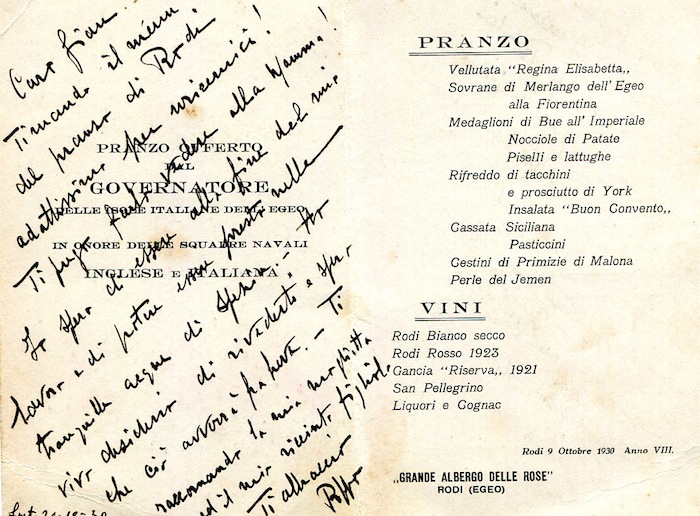 Caro Gian.
Ti mando il menu
del pranzo di Rodi
adattissimo per
Ti prego farlo vedere alla Mamma!
Io spero di essere alla fine del mio
lavoro e di potere essere presto nelle
tranquille acque di Spezia. - Ho
vivo desiderio di rivederti e spero
che ciò avverrà fra breve. - Ti
raccomando la mia moglietta
ed il mio figliolo.
Ti abbraccio
PRANZO OFFERTO
DAL
GOVERNATORE
DELLE ISOLE ITALIANE DELL'EGEO
IN ONORE DELLE SQUADRE NAVALI
INGLESE E ITALIANA
PRANZO
Vellutata "Regina Elisabetta„
Sovrane di Merlango dell'Egeo
alla Fiorentina
Medaglioni di Bue all' Imperiale
Nocciole di Patate
Piselli e lattughe
Rifreddo di tacchini
e prosciutto di York
Insalata "Buon Convento„
Cassata Siciliana
Pasticcini
Cestini di Primizie di Malona
Perle del Jemen
VINI
Rodi Bianco secco
Rodi Rosso 1923
Gancia "Riserva„ 1921
San Pellegrino
Liquori e Cognac
Rodi 9 Ottobre 1930 Anno VIII.
„GRANDE ALBERGO DELLE ROSE"
RODI (EGEO)